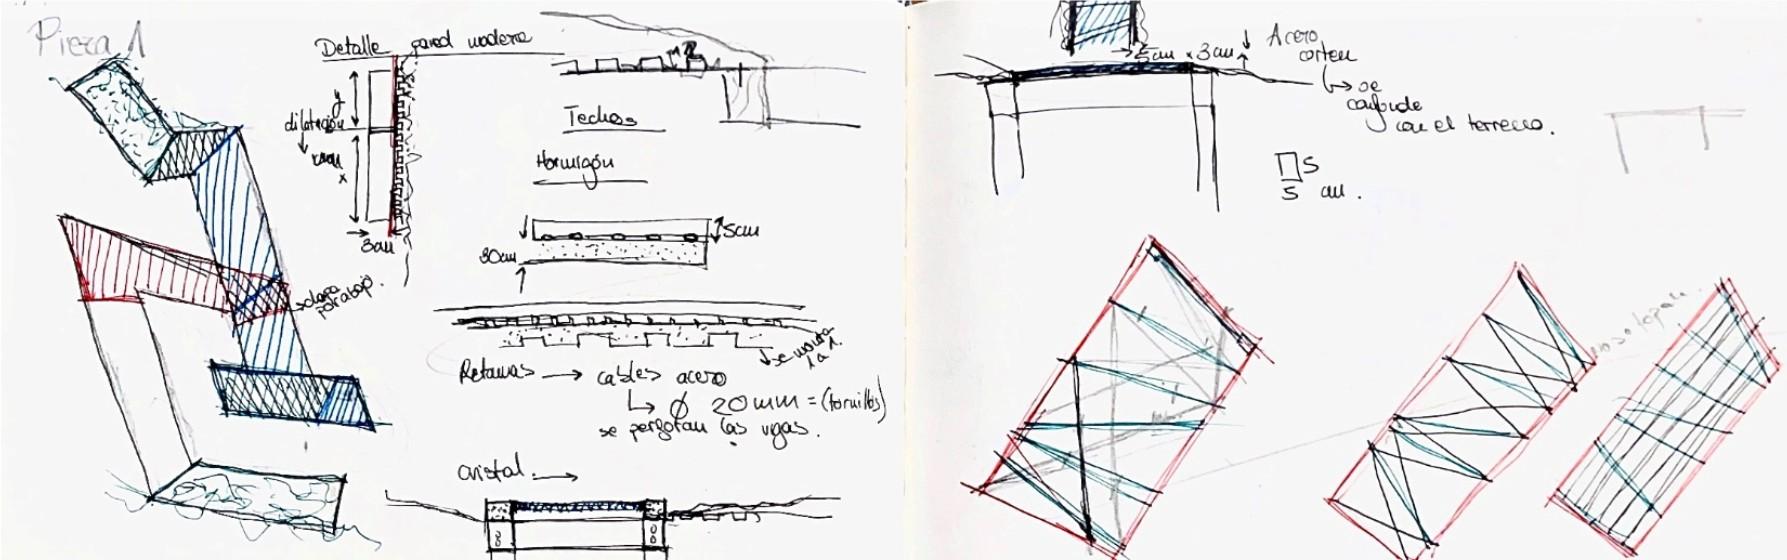 Pieza 1
Detalle pared madera
dilatación
y
x
3cm
Techos
Hormigón
5cm
30cm
Retamas → cables acero
↳ Ø 20mm = (tornillos)
se perforan las vigas.
cristal. →
por abajo.
5cm x 3cm
Acero
corten
↳ se
confunde
con el terreno.
5
5 cm.